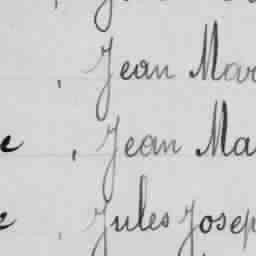 , Jean Mar
, Jean Ma
. Jules Josep